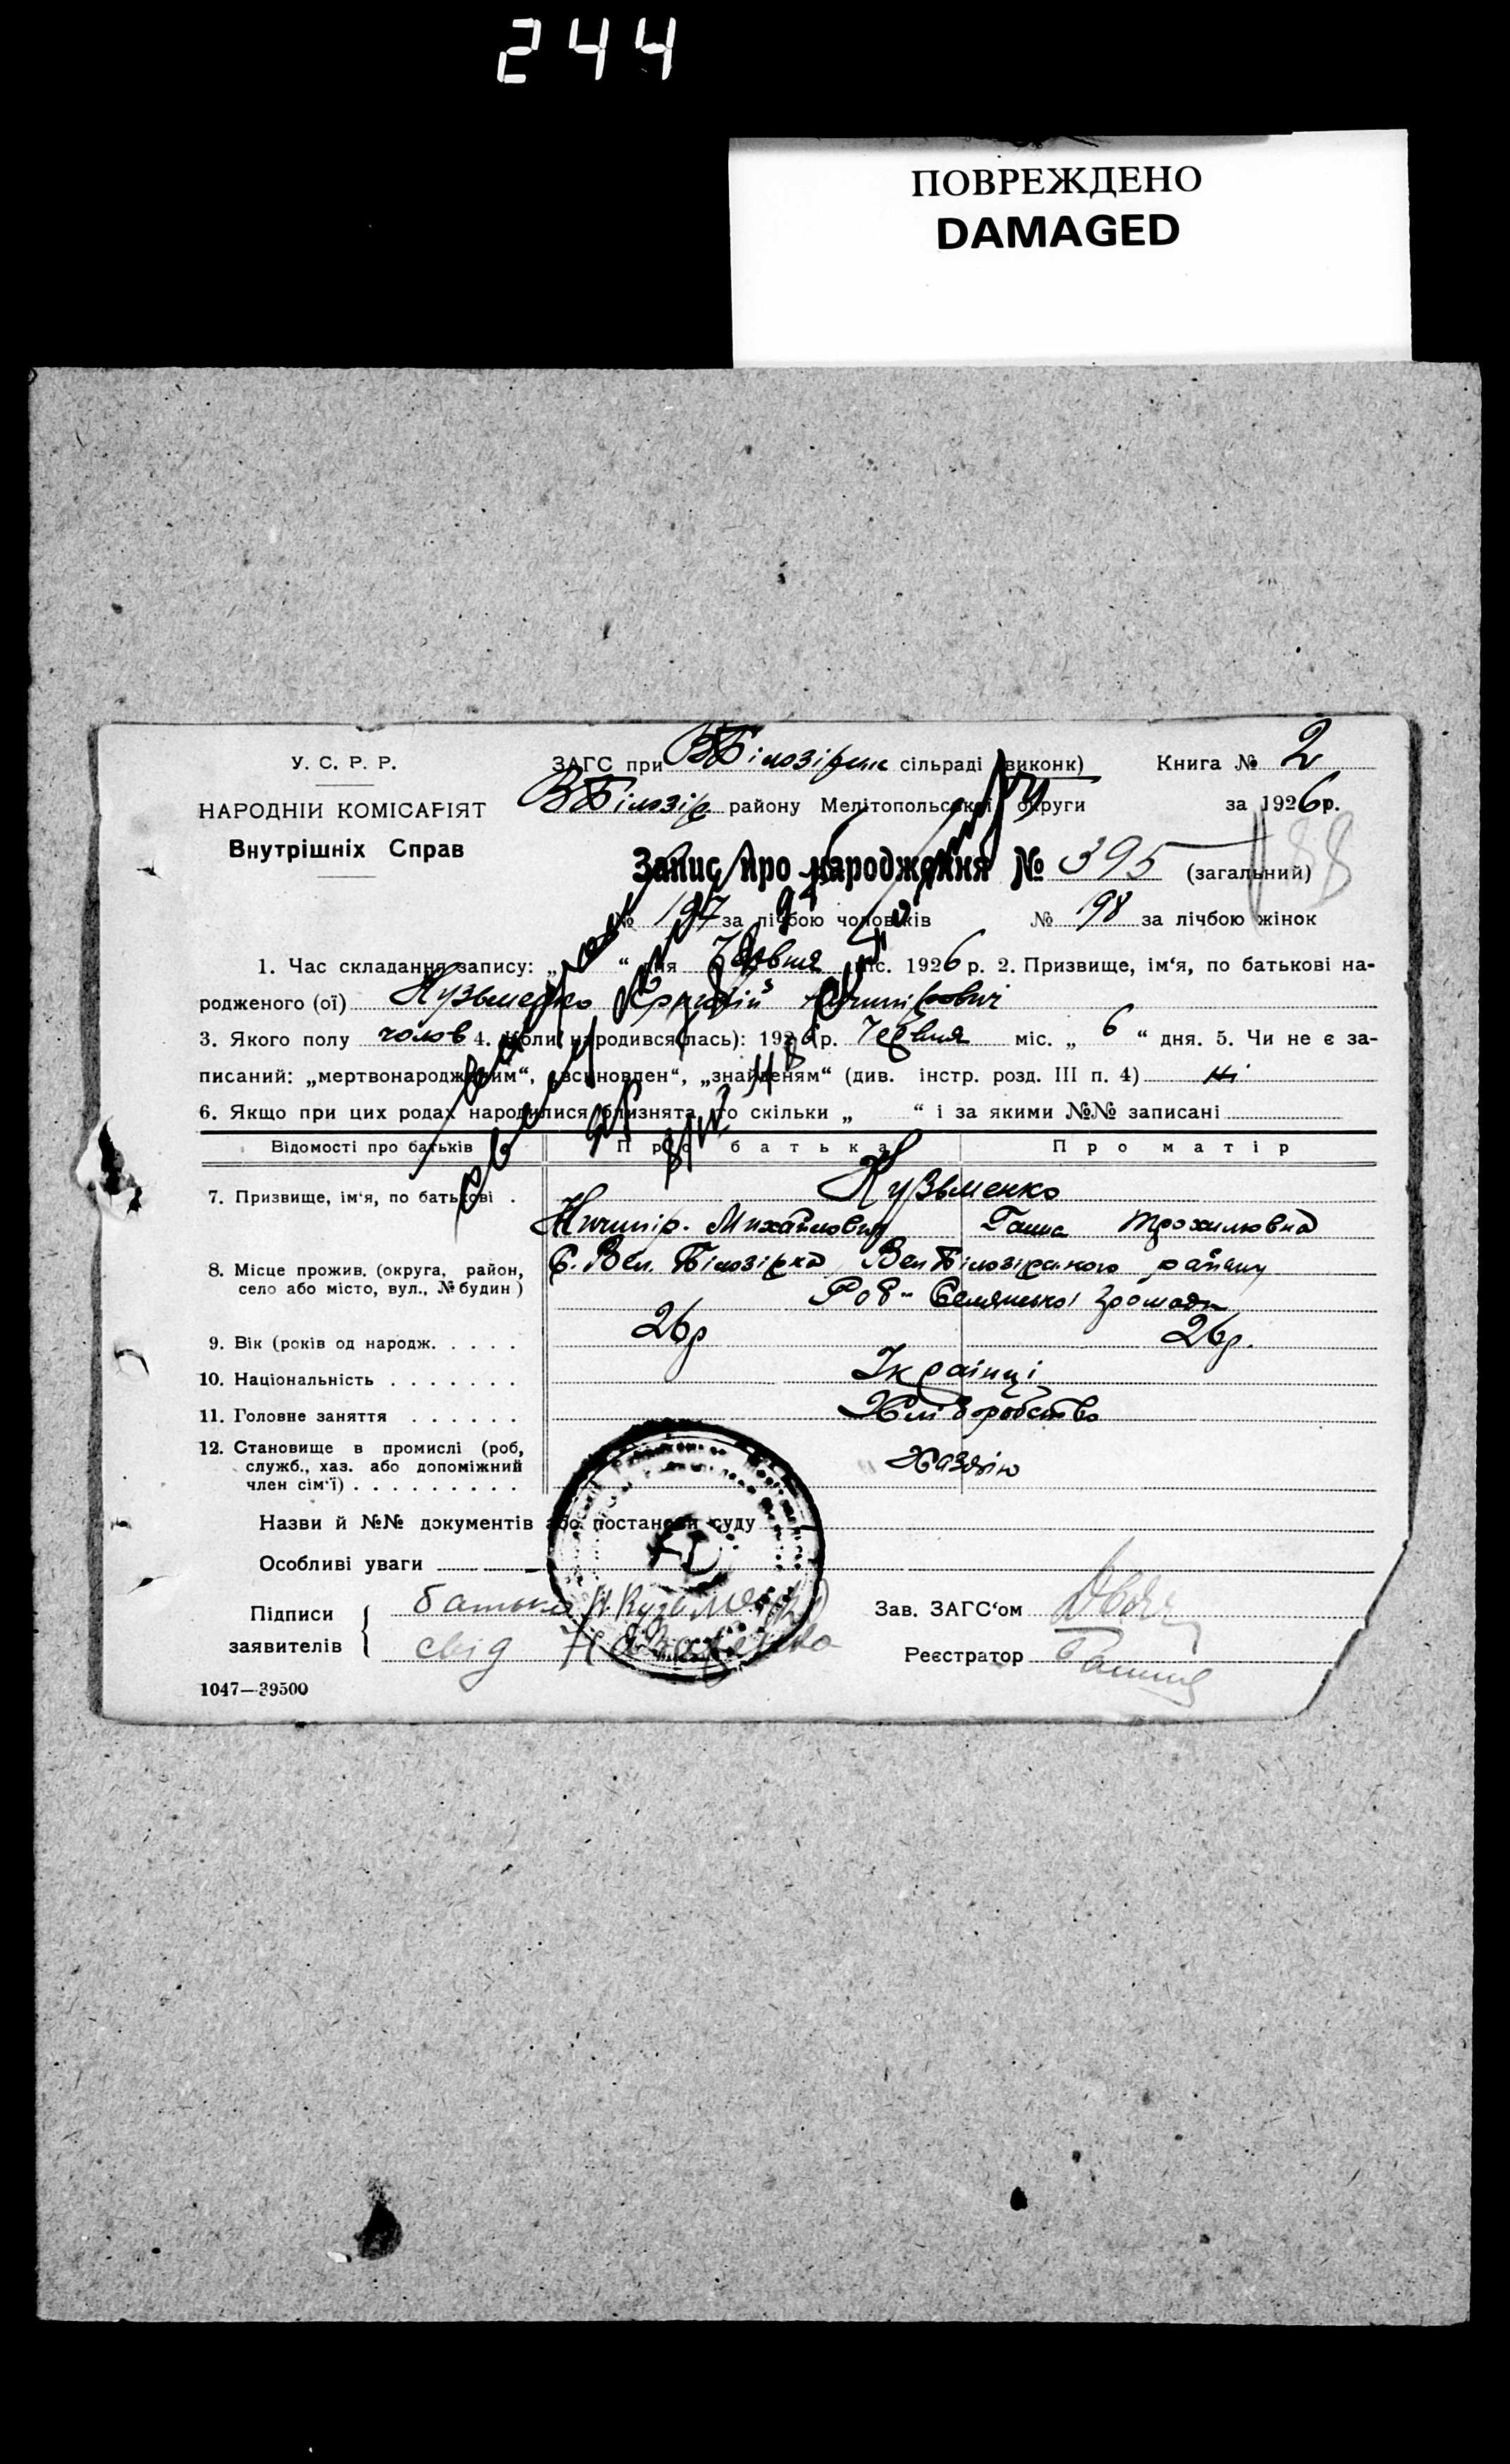 244
ПОВРЕЖДЕНО
DAMAGED
У. С. Р. Р.
НАРОДНІЙ КОМІСАРІЯТ
Внутрішніх Справ
ЗАГС при ВБілозірськ сільраді (виконк)
Книга № 2
ВБілозір. району Мелітопольської округи
за 1926 р.
Запис про народження № 395 (загальний)
88
№ 197 за лічбою чоловіків № 198 за лічбою жінок
1. Час складання запису: „ “ дня Червня міс. 1926 р. 2. Призвище, ім‘я, по батькові на-
родженого (ої) Кузьменко Ничипірович
3. Якого полу чолов 4. Коли народився (лась): 1926 р. Червня міс. „ 6 “ дня. 5. Чи не є за-
писаний: „мертвонародженим“, „всиновлен“, „знайденям“ (див. інстр. розд. III п. 4) ні
6. Якщо при цих родах народилися близнята, то скільки „ “ і за якими №№ записані
Відомості про батьків Про батька Про матір
7. Призвище, ім‘я, по батькові . Кузьменко
Ничипір. Михайлович Ганна Трохимовна
8. Місце прожив. (округа, район,
село або місто, вул., № будин)
С. Вел. Білозірка Вел Білозірського району
Селянської громади
9. Вік (років од народж. . . . . 26р 26р.
10. Національність . . . . . . . Українці
11. Головне заняття . . . . . . Хліборобство
12. Становище в промислі (роб,
служб., хаз. або допоміжний
член сім‘ї) . . . . . . . . .
Хазяїн
Назви й №№ документів або постанови суду
Особливі уваги
Підписи
заявителів
батько Н Кузьменко
свід
Зав. ЗАГС‘ом
Реєстратор
1047—39500